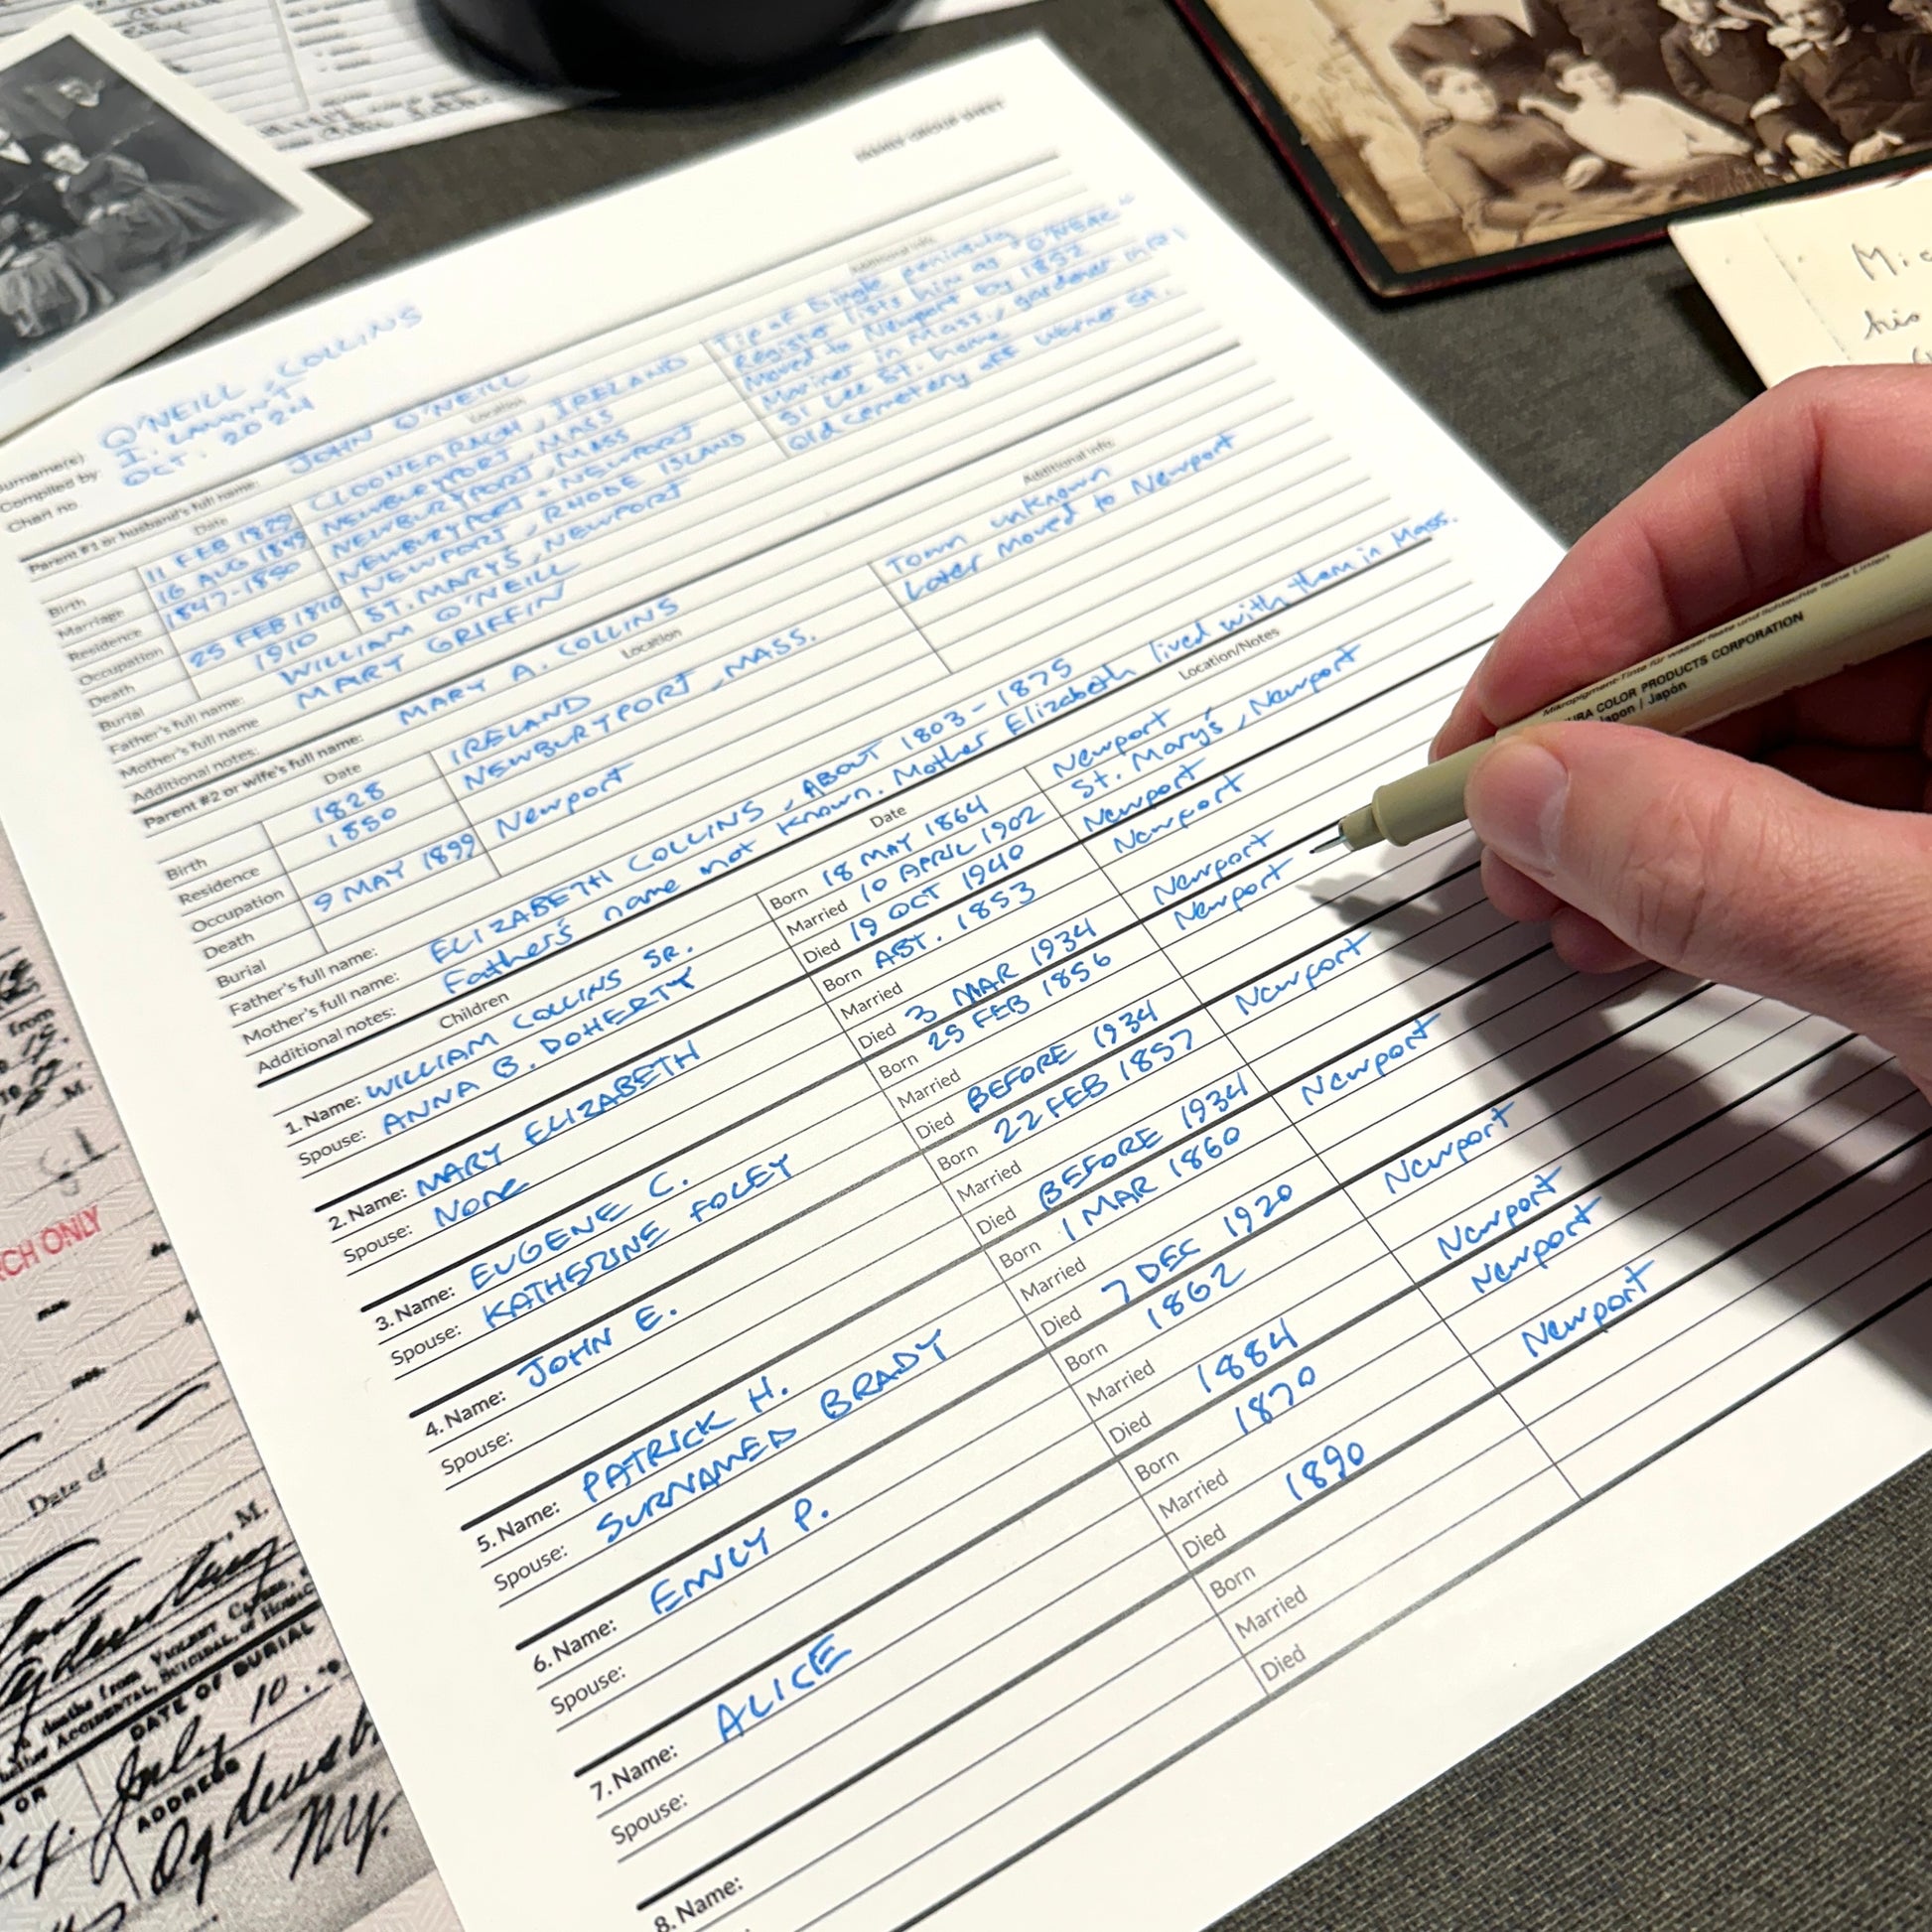 FAMILY GROUP SHEET
Surname(s) O'NEILL, COLLINS
Compiled by: I. LAMONT
Chart no. OCT. 2024
Parent #1 or husband's full name: JOHN O'NEILL
Date Location Additional info
Birth 11 FEB 1829 CLOONEARAGH, IRELAND Tip of Dingle peninsula
Marriage 16 AUG 1849 NEWBURYPORT, MASS Register lists him as "O'NEAL"
Residence 1847-1850 NEWBURYPORT, MASS Moved to Newport by 1852
Occupation NEWBURYPORT + NEWPORT Mariner in Mass., gardener in RI
Death 25 FEB 1910 NEWPORT, RHODE ISLAND 51 Lee St. home
Burial 1910 ST. MARY'S, NEWPORT Old cemetery off Warner St.
Father's full name: WILLIAM O'NEILL
Mother's full name MARY GRIFFIN
Additional notes:
Parent #2 or wife's full name: MARY A. COLLINS
Date Location Additional info
Birth 1828 IRELAND Town unknown
Residence 1850 NEWBURYPORT, MASS. Later moved to Newport
Occupation
Death 9 MAY 1899 Newport
Burial
Father's full name:
Mother's full name: ELIZABETH COLLINS, ABOUT 1803-1875
Additional notes: Father's name not known. Mother Elizabeth lived with them in Mass.
Children Date Location/Notes
1. Name: WILLIAM COLLINS SR. Born 18 MAY 1864 Newport
Spouse: ANNA B. DOHERTY Married 10 APRIL 1902 St. Mary's, Newport
Died 19 OCT 1940 Newport
2. Name: MARY ELIZABETH Born ABT. 1853 Newport
Spouse: None Married
Died 3 MAR 1934 Newport
3. Name: EUGENE C. Born 25 FEB 1856 Newport
Spouse: KATHERINE FOLEY Married
Died BEFORE 1934
4. Name: JOHN E. Born 22 FEB 1857 Newport
Spouse: Married
Died BEFORE 1934
5. Name: PATRICK H. Born 1 MAR 1860 Newport
Spouse: SURNAMED BRADY Married
Died 7 DEC 1920 Newport
6. Name: EMILY P. Born 1862 Newport
Spouse: Married
Died 1884 Newport
7. Name: ALICE Born 1870 Newport
Spouse: Married
Died 1890 Newport
8. Name: Born
Married
Died
Mic
his
COLOR PRODUCTS CORPORATION
Japon / Japón
from
M.
CH ONLY
Date of
M.
deaths from VIOLENT
ACCIDENTAL, SUICIDAL, or
DATE OF BURIAL
July 10
OR
ADDRESS
Ogdensb
NY.